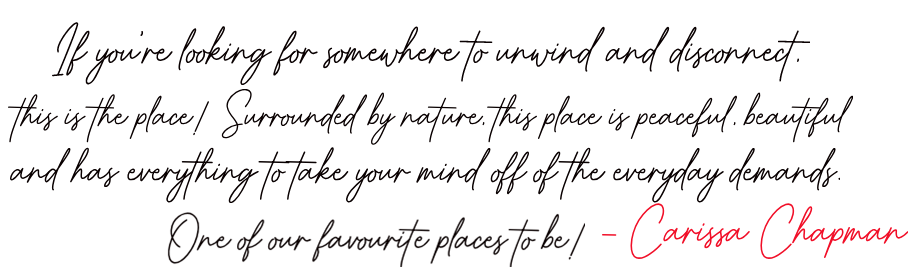 If you're looking for somewhere to unwind and disconnect,
this is the place! Surrounded by nature, this place is peaceful, beautiful
and has everything to take your mind off of the everyday demands.
One of our favourite places to be! - Carissa Chapman